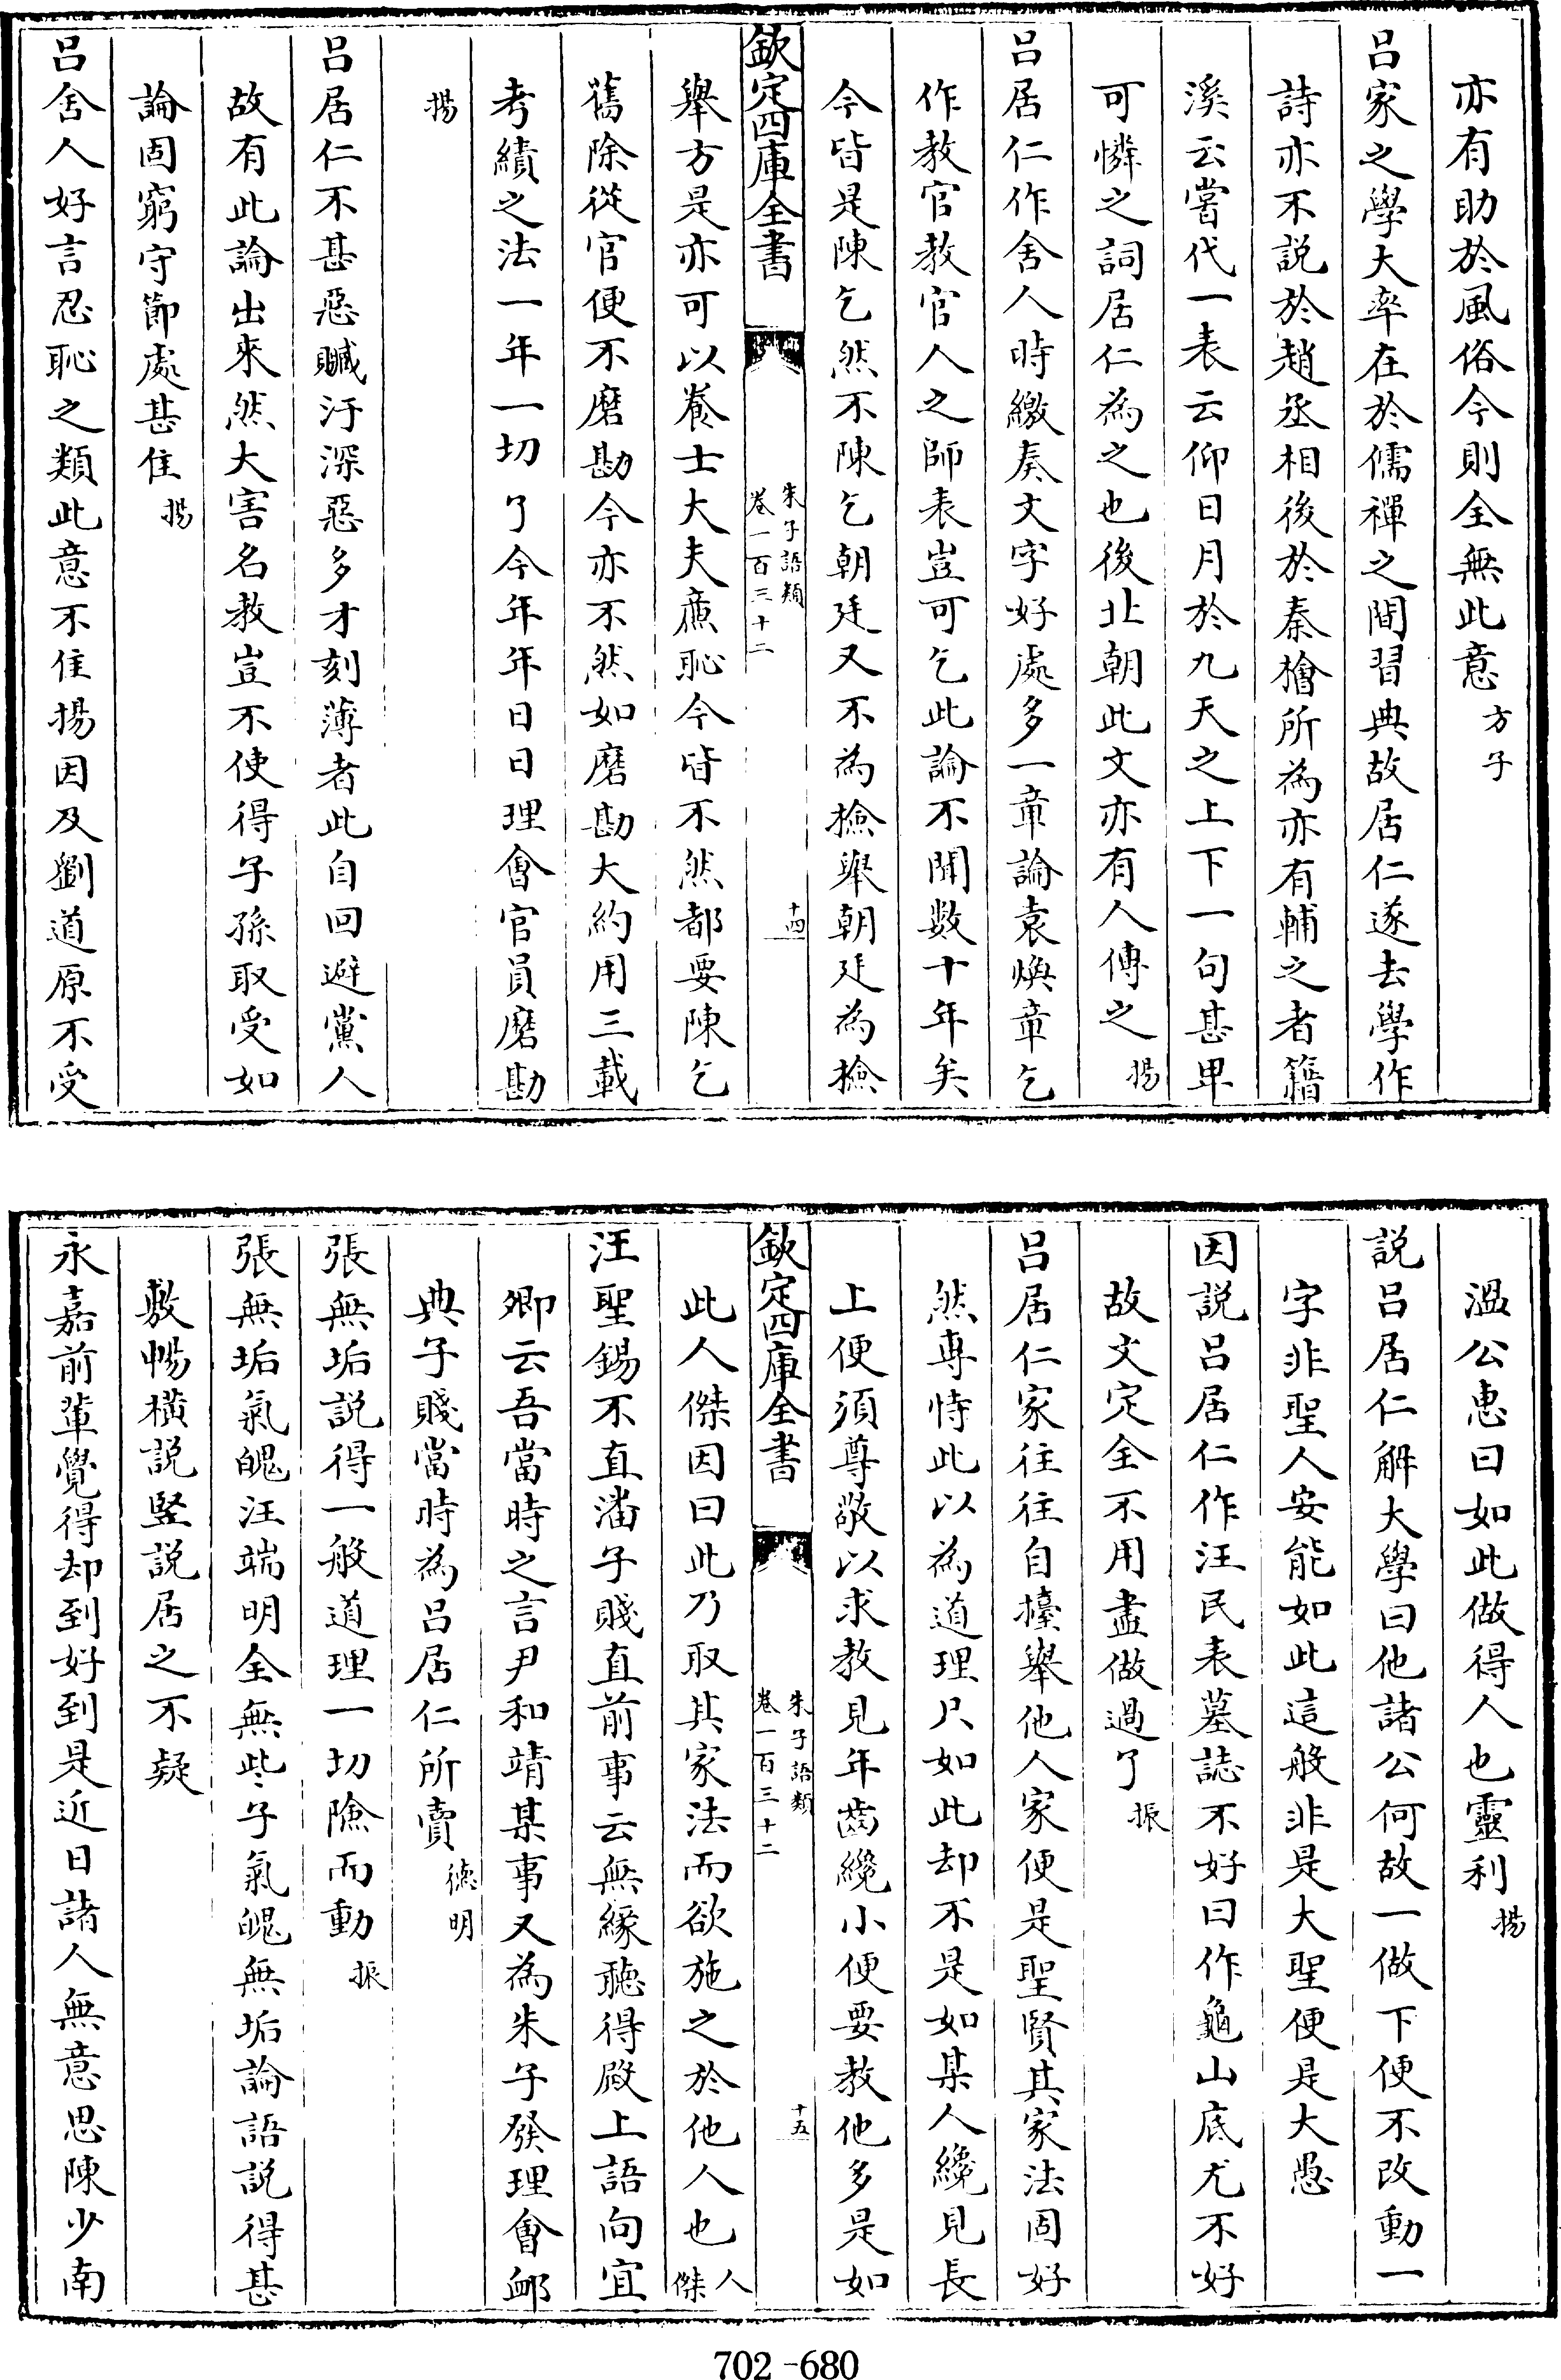 亦有助於風俗今則全無此意方子
呂家之學大率在於儒禪之間習典故居仁遂去學作
詩亦不説於趙丞相後於秦檜所為亦有輔之者籍
溪云嘗代一表云仰日月於九天之上下一句甚卑
可憐之詞居仁為之也後北朝此文亦有人傳之揚
呂居仁作舍人時繳奏文字好處多一章論袁煥章乞
作教官教官人之師表豈可乞此論不聞數十年矣
今皆是陳乞然不陳乞朝廷又不為檢舉朝廷為檢
欽定四庫全書
朱子語類
卷一百三十二
十四
舉方是亦可以養士大夫㢘恥今皆不然都要陳乞
舊除從官便不磨勘今亦不然如磨勘大約用三載
考績之法一年一切了今年年日日理會官員磨勘
揚
呂居仁不甚惡贓汙深惡多才刻薄者此自回避黨人
故有此論出來然大害名教豈不使得子孫取受如
論固窮守節處甚佳揚
呂舍人好言忍恥之類此意不佳揚因及劉道原不受
溫公惠曰如此做得人也靈利揚
説呂居仁解大學曰他諸公何故一做下便不改動一
字非聖人安能如此這般非是大聖便是大愚
因説呂居仁作汪民表墓誌不好曰作龜山底尤不好
故文定全不用盡做過了振
呂居仁家往往自擡舉他人家便是聖賢其家法固好
然專恃此以為道理只如此却不是如某人纔見長
上便須尊敬以求教見年齒纔小便要教他多是如
欽定四庫全書
朱子語類
卷一百三十二
十五
此人傑因曰此乃取其家法而欲施之於他人也人傑
汪聖錫不直潘子賤直前事云無緣聽得殿上語向宜
卿云吾當時之言尹和靖某事又為朱子發理會䘏
典子賤當時為呂居仁所賣德明
張無垢説得一般道理一切險而動振
張無垢氣魄汪端明全無些子氣魄無垢論語説得甚
敷暢橫説竪説居之不疑
永嘉前輩覺得却到好到是近日諸人無意思陳少南
702-680